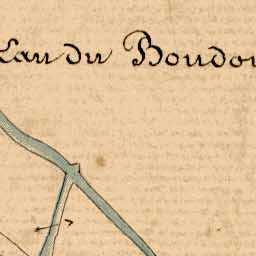 Lau du Boudou